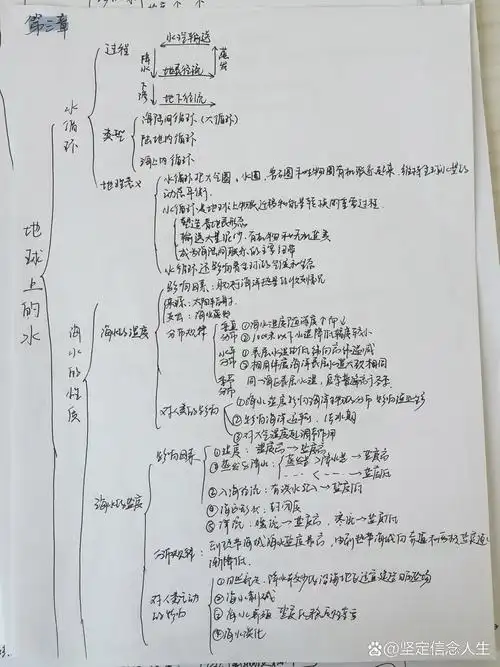 第三章
地球上的水
水循环
过程
水汽输送
降水
蒸发
地表径流
下渗
地下径流
类型
海陆间循环(大循环)
陆地内循环
海上内循环
地理意义
水循环把大气圈、水圈、岩石圈和生物圈有机联系起来,维持
动态平衡.
水循环是地球上物质迁移和能量转换的重要过程.
塑造着地表形态
输送大量泥沙、有机物和无机盐类
成为海陆间联系的主要纽带
水循环还影响着全球的气候和生态
海水的性质
海水的温度
影响因素:取决于海洋热量的收支情况
来源:太阳辐射
支出:海水蒸发
分布规律
垂直分布
①海水温度随深度个
②1000米以下水温降低幅度较小
水平分布
①表层水温由低纬向高纬递减
②相同纬度海洋表层水温大致相同
季节分布
同一海区表层水温,夏季普遍高于冬季
对人类的影响
①海水温度影响海洋生物的分布
②影响海洋运输,结冰期
③对大气温度起调节作用
海水的盐度
影响因素
①温度:温度高→盐度高
②蒸发与降水:蒸发量>降水量→盐度高
<→盐度低
③入海径流:有淡水注入→盐度低
④海区形状:封闭度
⑤洋流:暖流→盐度高,寒流→盐度低
分布规律:
副热带海域海水盐度最高,由副热带海域向赤道和两极盐度逐
渐降低.
对人类活动的影响
①日照充足、降水较少的沿海地区适宜建造晒盐场
②海水制碱
③海水养殖
④海水淡化
@坚定信念人生